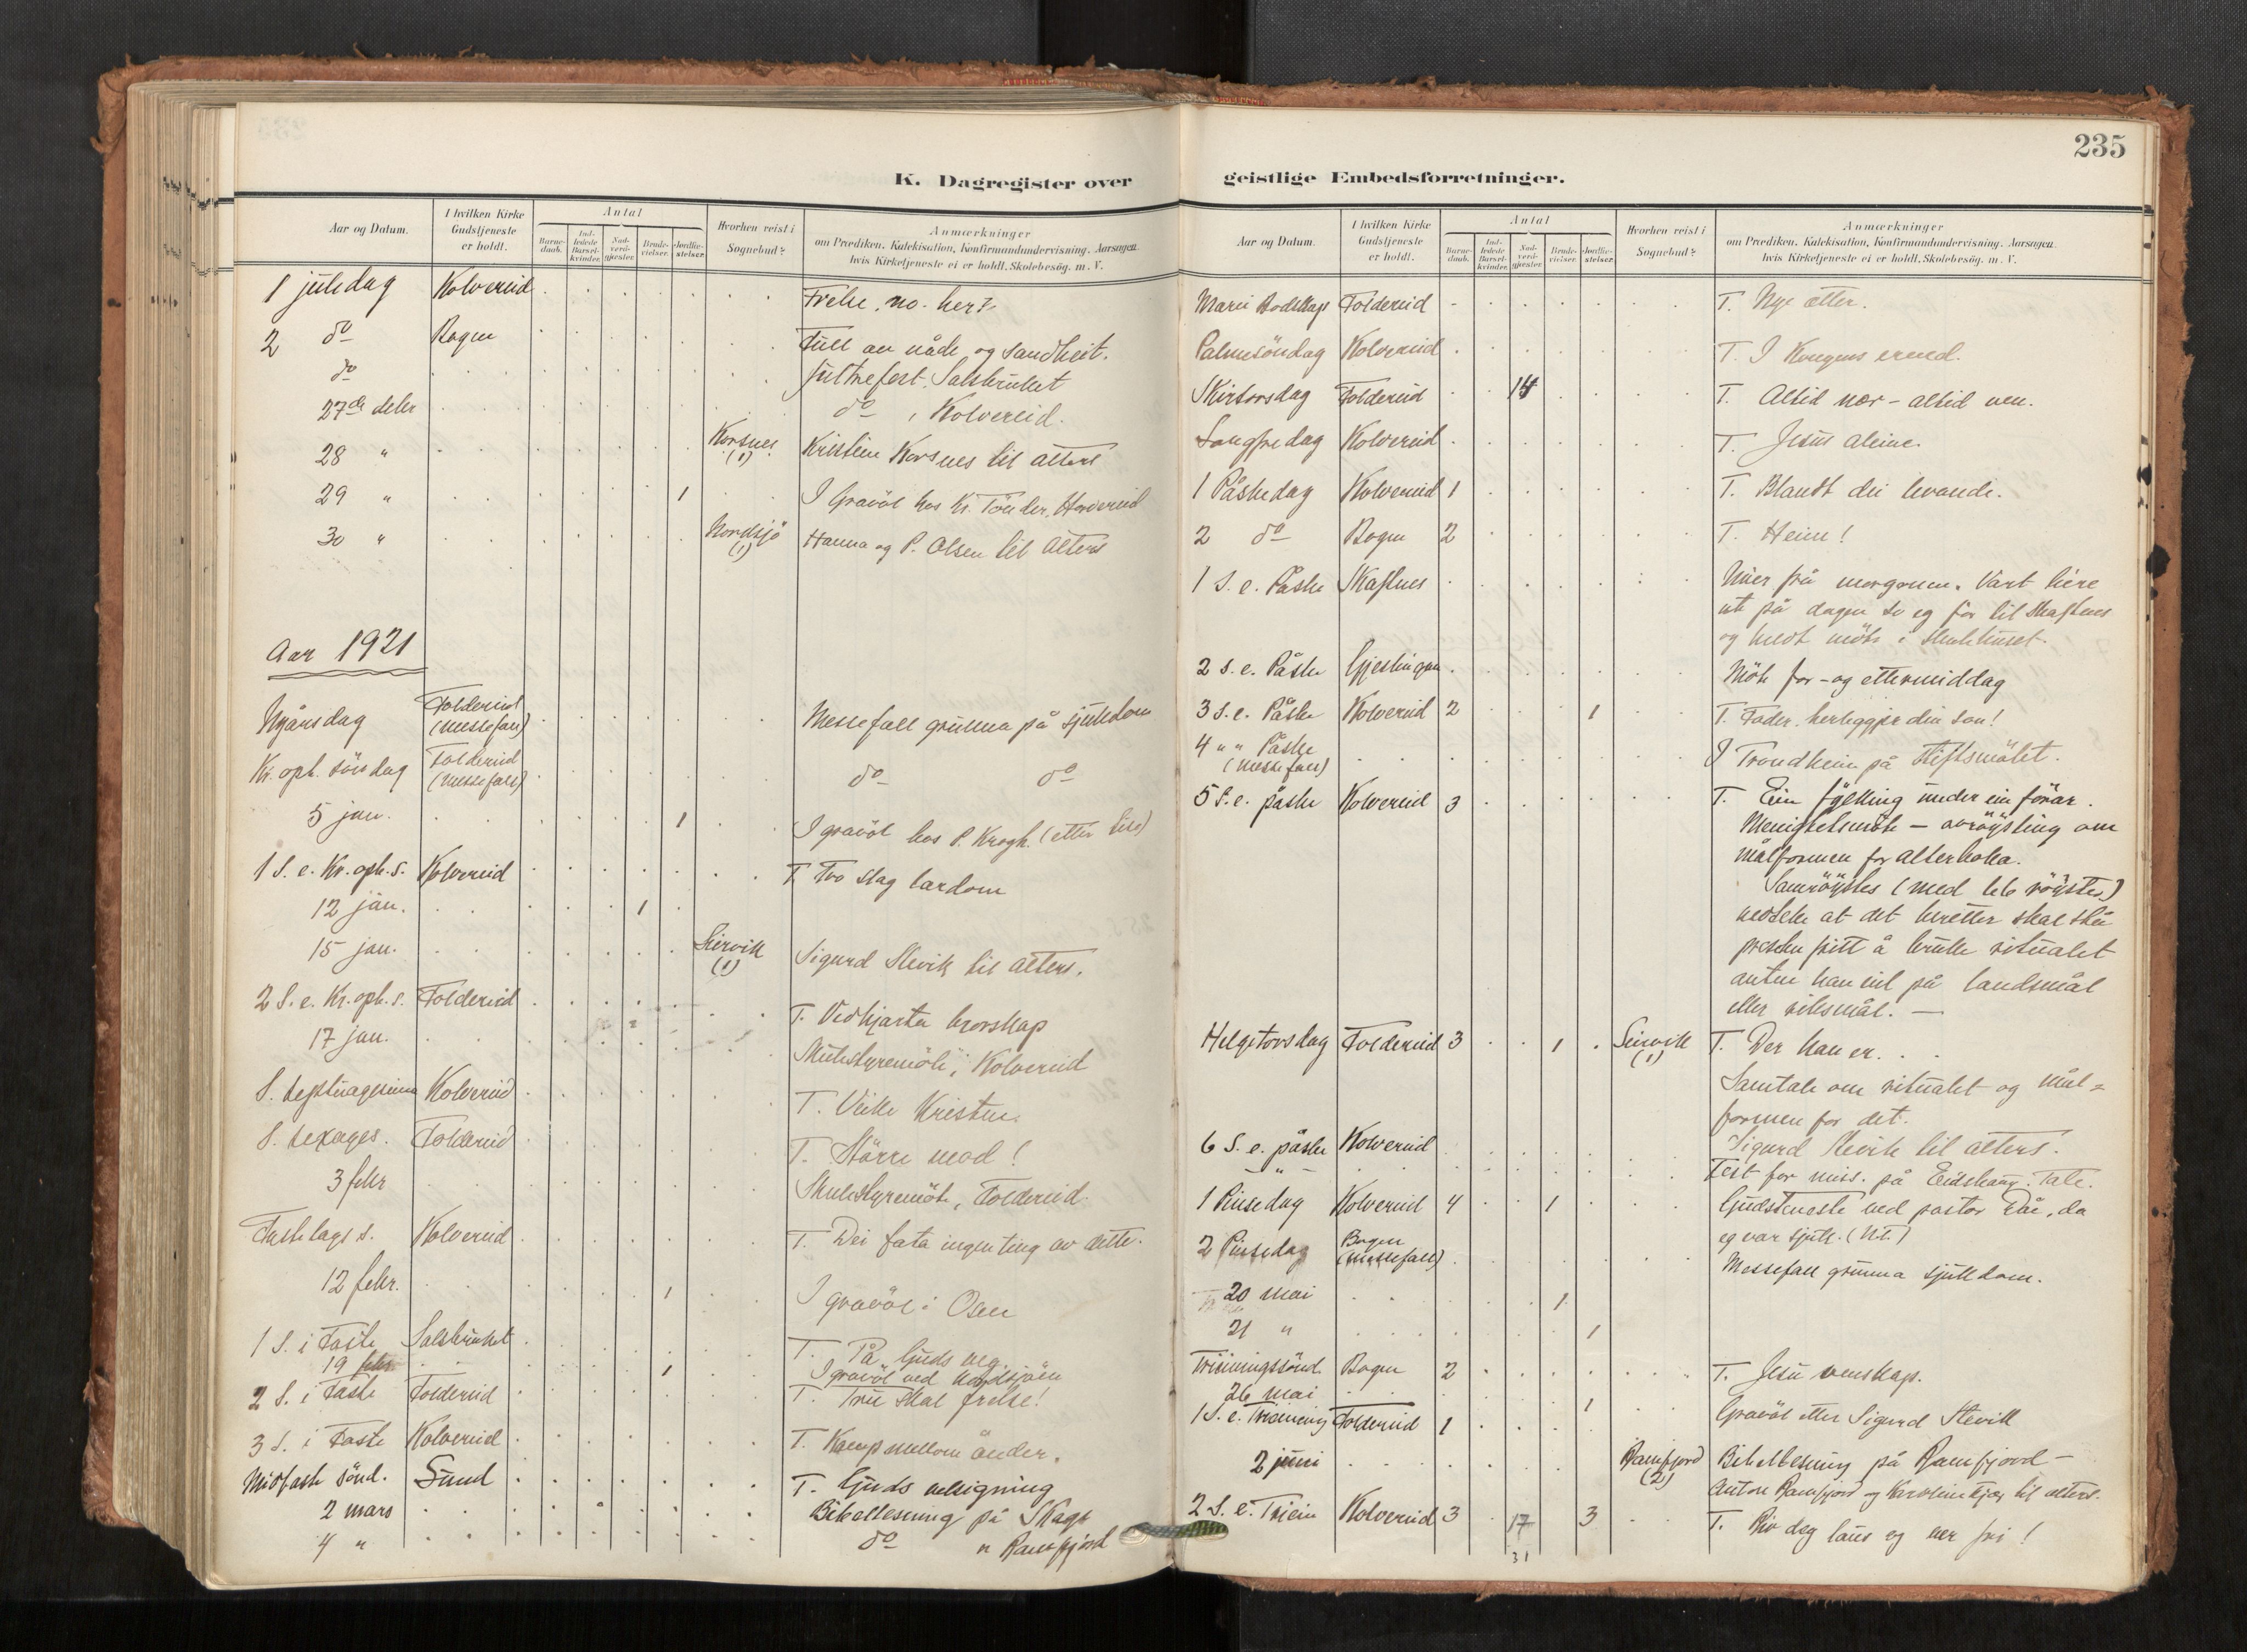 235
K. Dagregister over
Aar og Datum.
I hvilken Kirke Gudstjeneste er holdt.
Antal
Barne-daab.
Ind-ledede Barsel-kvinder.
Nad-verd-gjester.
Brude-vielser.
Jordfæ-stelser.
Hvorhen reist i Sognebud?
Anmærkninger
om Prædiken, Katekisation, Konfirmandundervisning, Aarsagen
hvis Kirketjeneste ei er holdt, Skolebesøg. m. V.
1 juledag Kolvereid Frelse, no. her
2 do Bogen Full av nåde og sandheit.
do Jultrefest, Salsbruket
27de debr do , Kolvereid.
28 " Korsnes (1) Kristine Korsnes til alters
29 " 1 I Gravöl hos Kr. Tönder,
30 " Nordsjö (1) Hanna og P. Olsen til alters
Aar 1921
Nyårsdag Foldereid (messefall) Messefall grunna på sjukdom
Kr. oph. söndag Foldereid (messefall) do do
5 jan. 1 I gravöl hos P. Krogh. (etter
1 S. e. Kr. oph. s. Kolvereid T. Tvo slag lærdom
12 jan. 1
15 jan. (1) Sigurd til alters.
2 S. e. Kr. oph. s. Foldereid T. Vedhjarta brorskap
17 jan. Skulestyremöte, Kolvereid
S. septuagesima Kolvereid T. Veike Kristne.
S. sexages. Foldereid T. Större mod!
3 febr Skulestyremöte, Foldereid.
Fastelags s. Kolvereid T. Dei fata ingenting av dette.
12 febr. 1 I gravöl i Osen
1 S. i Faste Salsbruket T. På Guds veg.
19 febr. 1 I gravöl ved Nordsjöen
2 S. i Faste Foldereid T. Tru skal frelse!
3 S. i Faste Kolvereid T. Kamp mellom ånder.
Midfaste sönd. Sund T. Guds velsigning
2 mars Bibellesning på Skage
4 " do " Ramfjord
geistlige Embedsforretninger.
Aar og Datum.
I hvilken Kirke Gudstjeneste er holdt.
Antal
Barne-daab.
Ind-ledede Barsel-kvinder.
Nad-verd-gjester.
Brude-vielser.
Jordfæ-stelser.
Hvorhen reist i Sognebud?
Anmærkninger
om Prædiken, Katekisation, Konfirmandundervisning, Aarsagen
hvis Kirketjeneste ei er holdt, Skolebesøg. m. V.
Marii Bodskaps Foldereid T. Nye ætter.
Palmesöndag Kolvereid T. I Kongens erend.
Skirtorsdag Foldereid 14 T. Altid nær - altid ven.
Langfredag Kolvereid T. Jesus aleine.
1 Påskedag Kolvereid 1 T. Blandt dei levande.
2 do Bogen 2 T. Heim!
1 S. e. Påske Skafnes Uver frå morgonen. Vart
ut på dagen so eg for til Skafnes
og heldt möte i skulehuset.
2 s. e. Påske Gjeslingan Möte for- og ettermiddag
3 S. e. Påske Kolvereid 2 1 T. Fader, herleggjer din son!
4 " " Påske (messefall) I Trondheim på Stiftsmötet.
5 S. e. påske Kolvereid 3 T. Ein fylking under ein förar.
Menighetsmöte - avröysting om
målformen for alterboka.
Samröystes (med röyster)
vedteke at det heretter skal stå
presten fritt å bruke ritualet
anten han vil på landsmål
eller riksmål. —
Helgetorsdag Foldereid 3 1 (1) T. Der han er. . .
Samtale om ritualet og mål=
formen for det.
Sigurd til alters.
6 S. e. påske Kolvereid
— " — Fest for miss. på Eidshaug. Tale.
1 Pinsedag Kolvereid 4 1 Gudsteneste ved pastor da
eg var sjuk. (N.T.)
2 Pinsedag Bogen (messefall) Messefall grunna sjukdom.
20 mai 1
21 " 1
Triningssönd. Bogen 2 T. Jesu venskap.
26 mai 1 Gravöl etter Sigurd
1 S. e. Treining Foldereid 1
2 juni Ramfjord (2) Bibellesning på Ramfjord -
Anton Ramfjord og Karoline til alters.
2 S. e. Trein Kolvereid 3 17 3 T. Riv deg laus og ver fri!
31